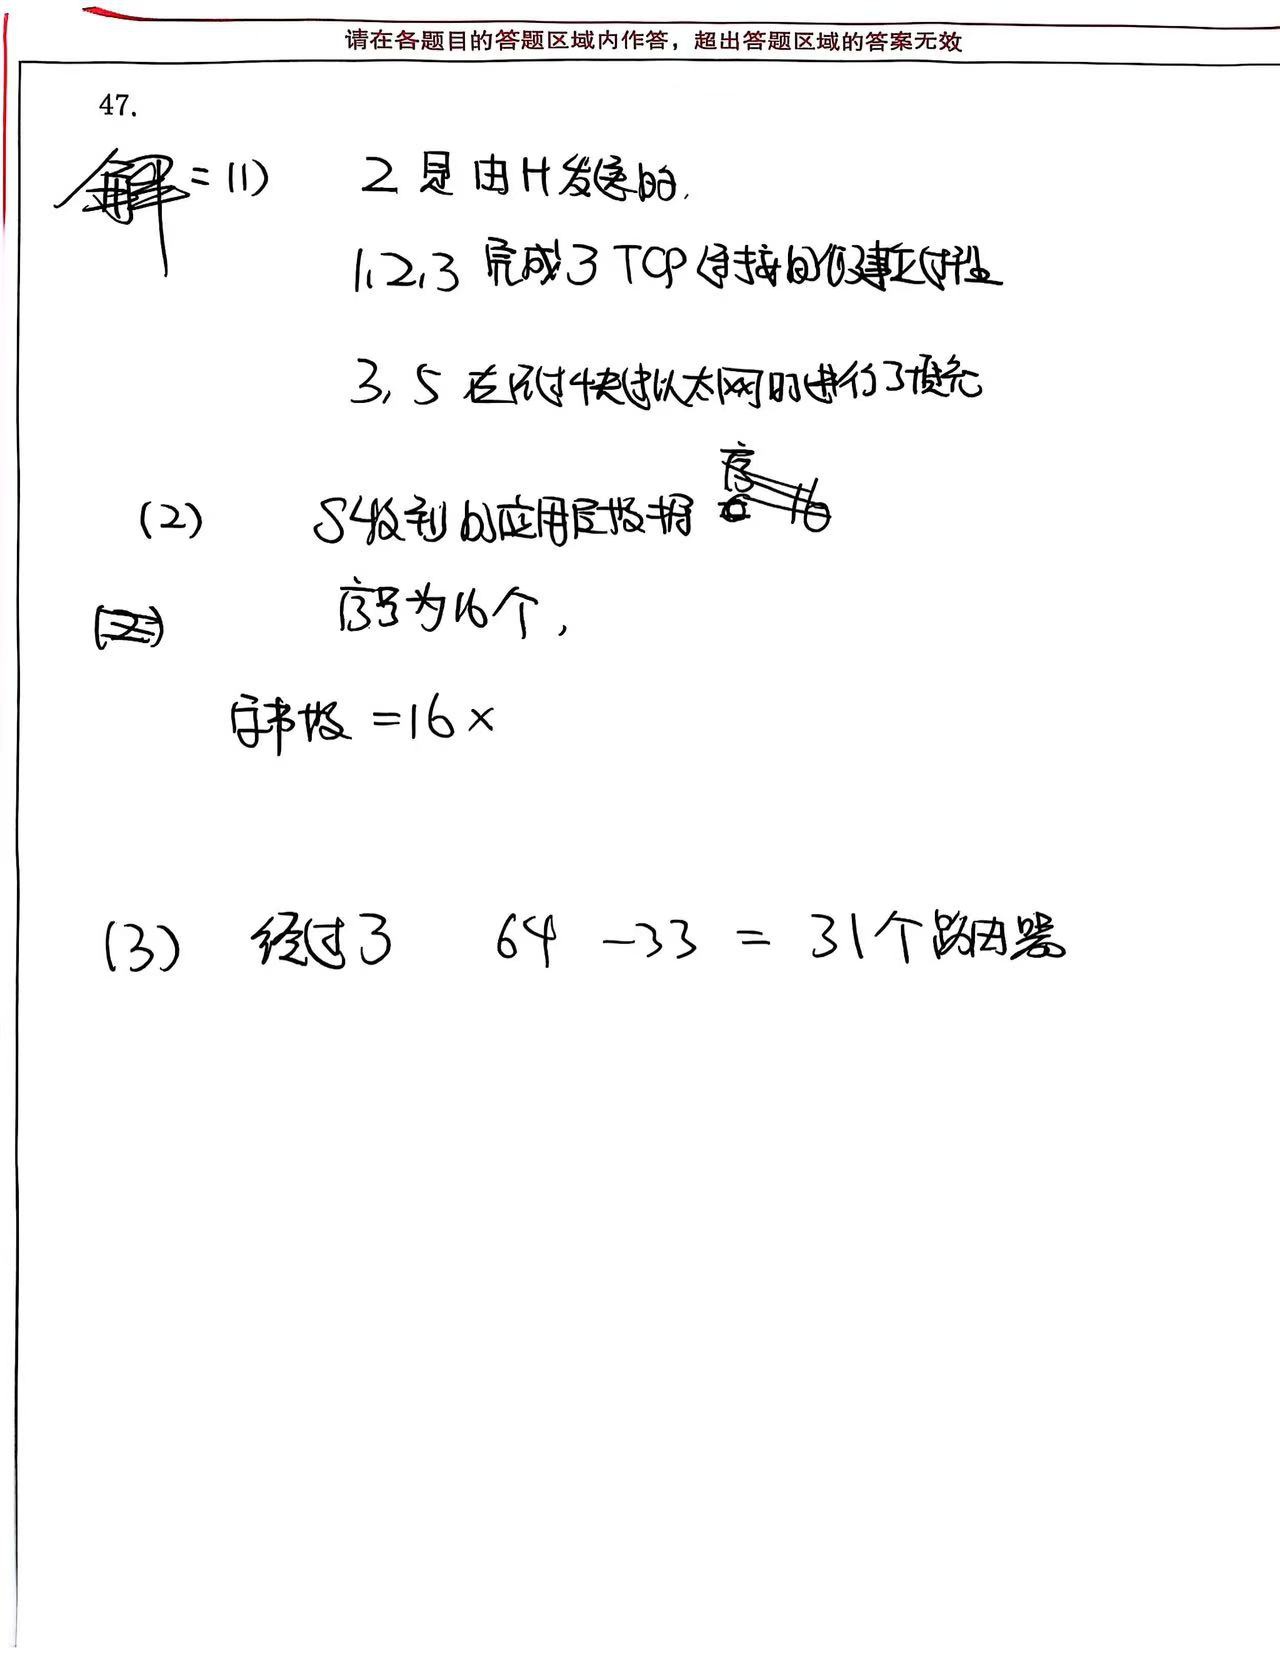 请在各题目的答题区域内作答，超出答题区域的答案无效
47.
解：(1) 2是由H发送的.
1,2,3 完成了TCP连接的建立过程
3,5 在经过快速以太网时进行了填充
(2) S收到的应用层数据
序号为16个，
字节数 =16×
(3) 经过了 64 -33 = 31个路由器